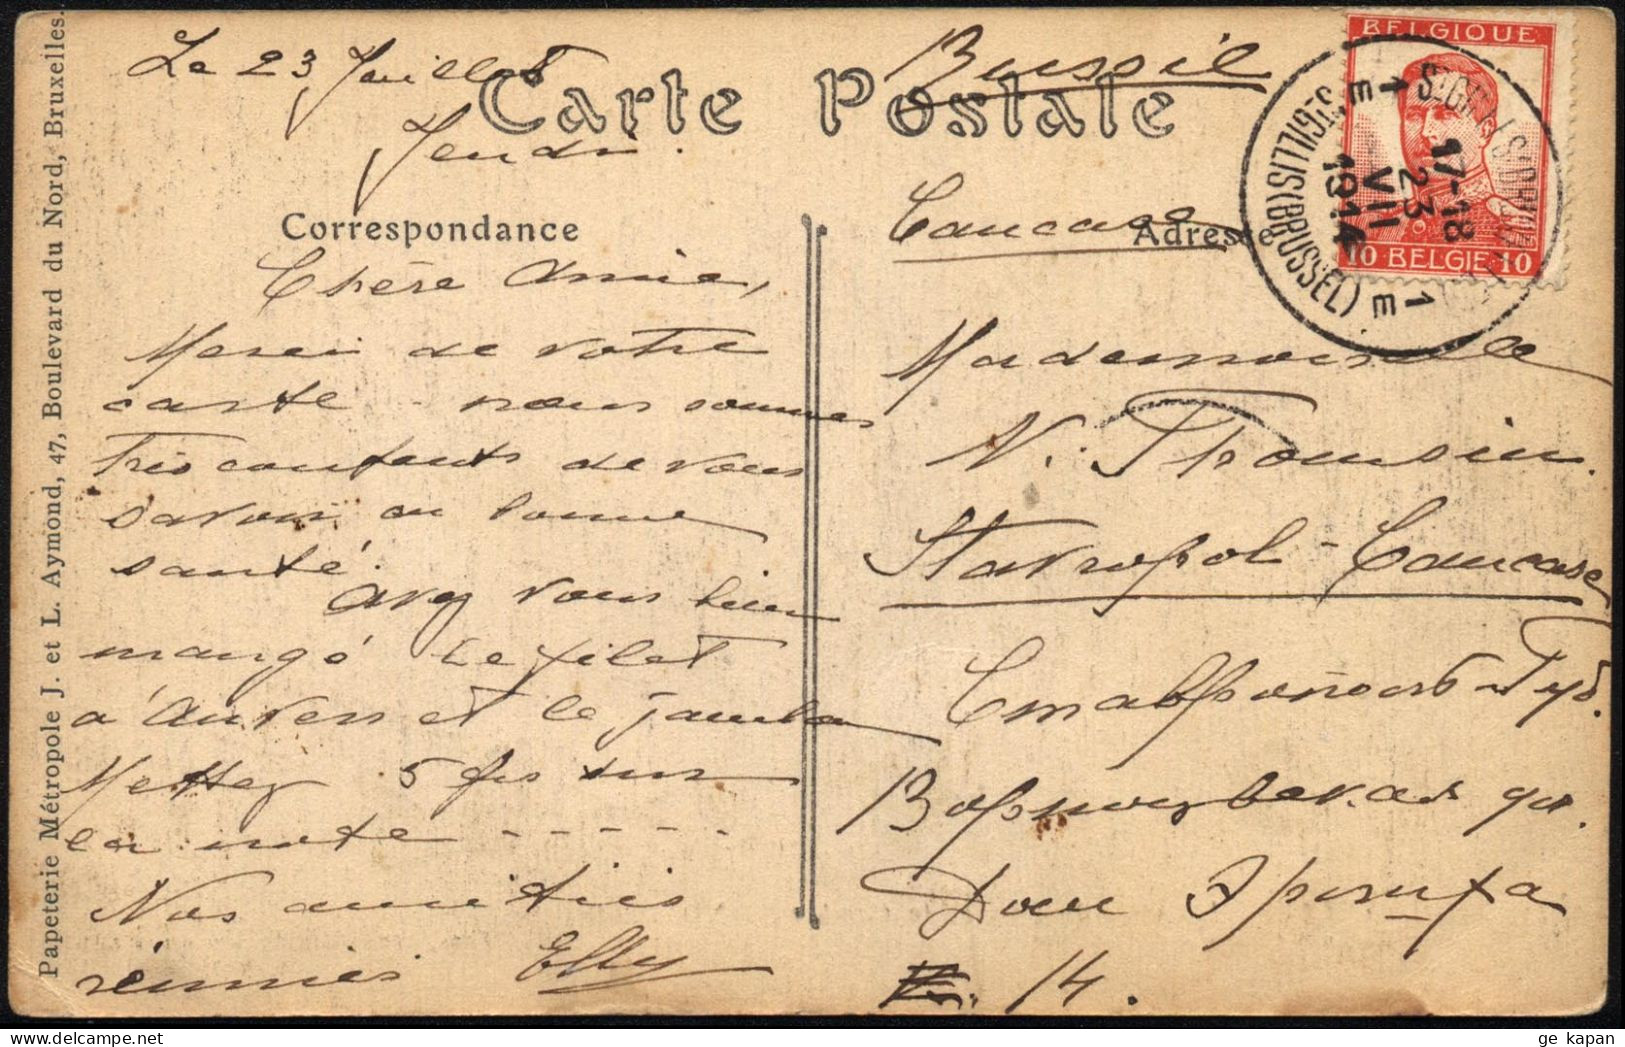 Papeterie Métropole J. et L. Aymond, 47, Boulevard du Nord, Bruxelles.
Carte Postale
Le 23 Juillet
Jeudi.
Correspondance
Chère Amie,
Merci de votre
carte - nous sommes
très contents de vous
savoir en bonne
santé.
Avez vous bien
mangé le filet
d'Anvers et le jambon
Mettez 5 fs sur
la note - - - - -
Nos amitiés
réunies Elly
Russie
Caucase
Adresse
Mademoiselle
N. Thomsin.
Stavropol - Caucase
Ставропольск Губ.
Воронцовская ул.
Дом
14.
BELGIQUE
10 BELGIE 10
ST GILLIS (BRUSSEL)
17-18
23
VII
1914
E 1
1 E
ge kapan